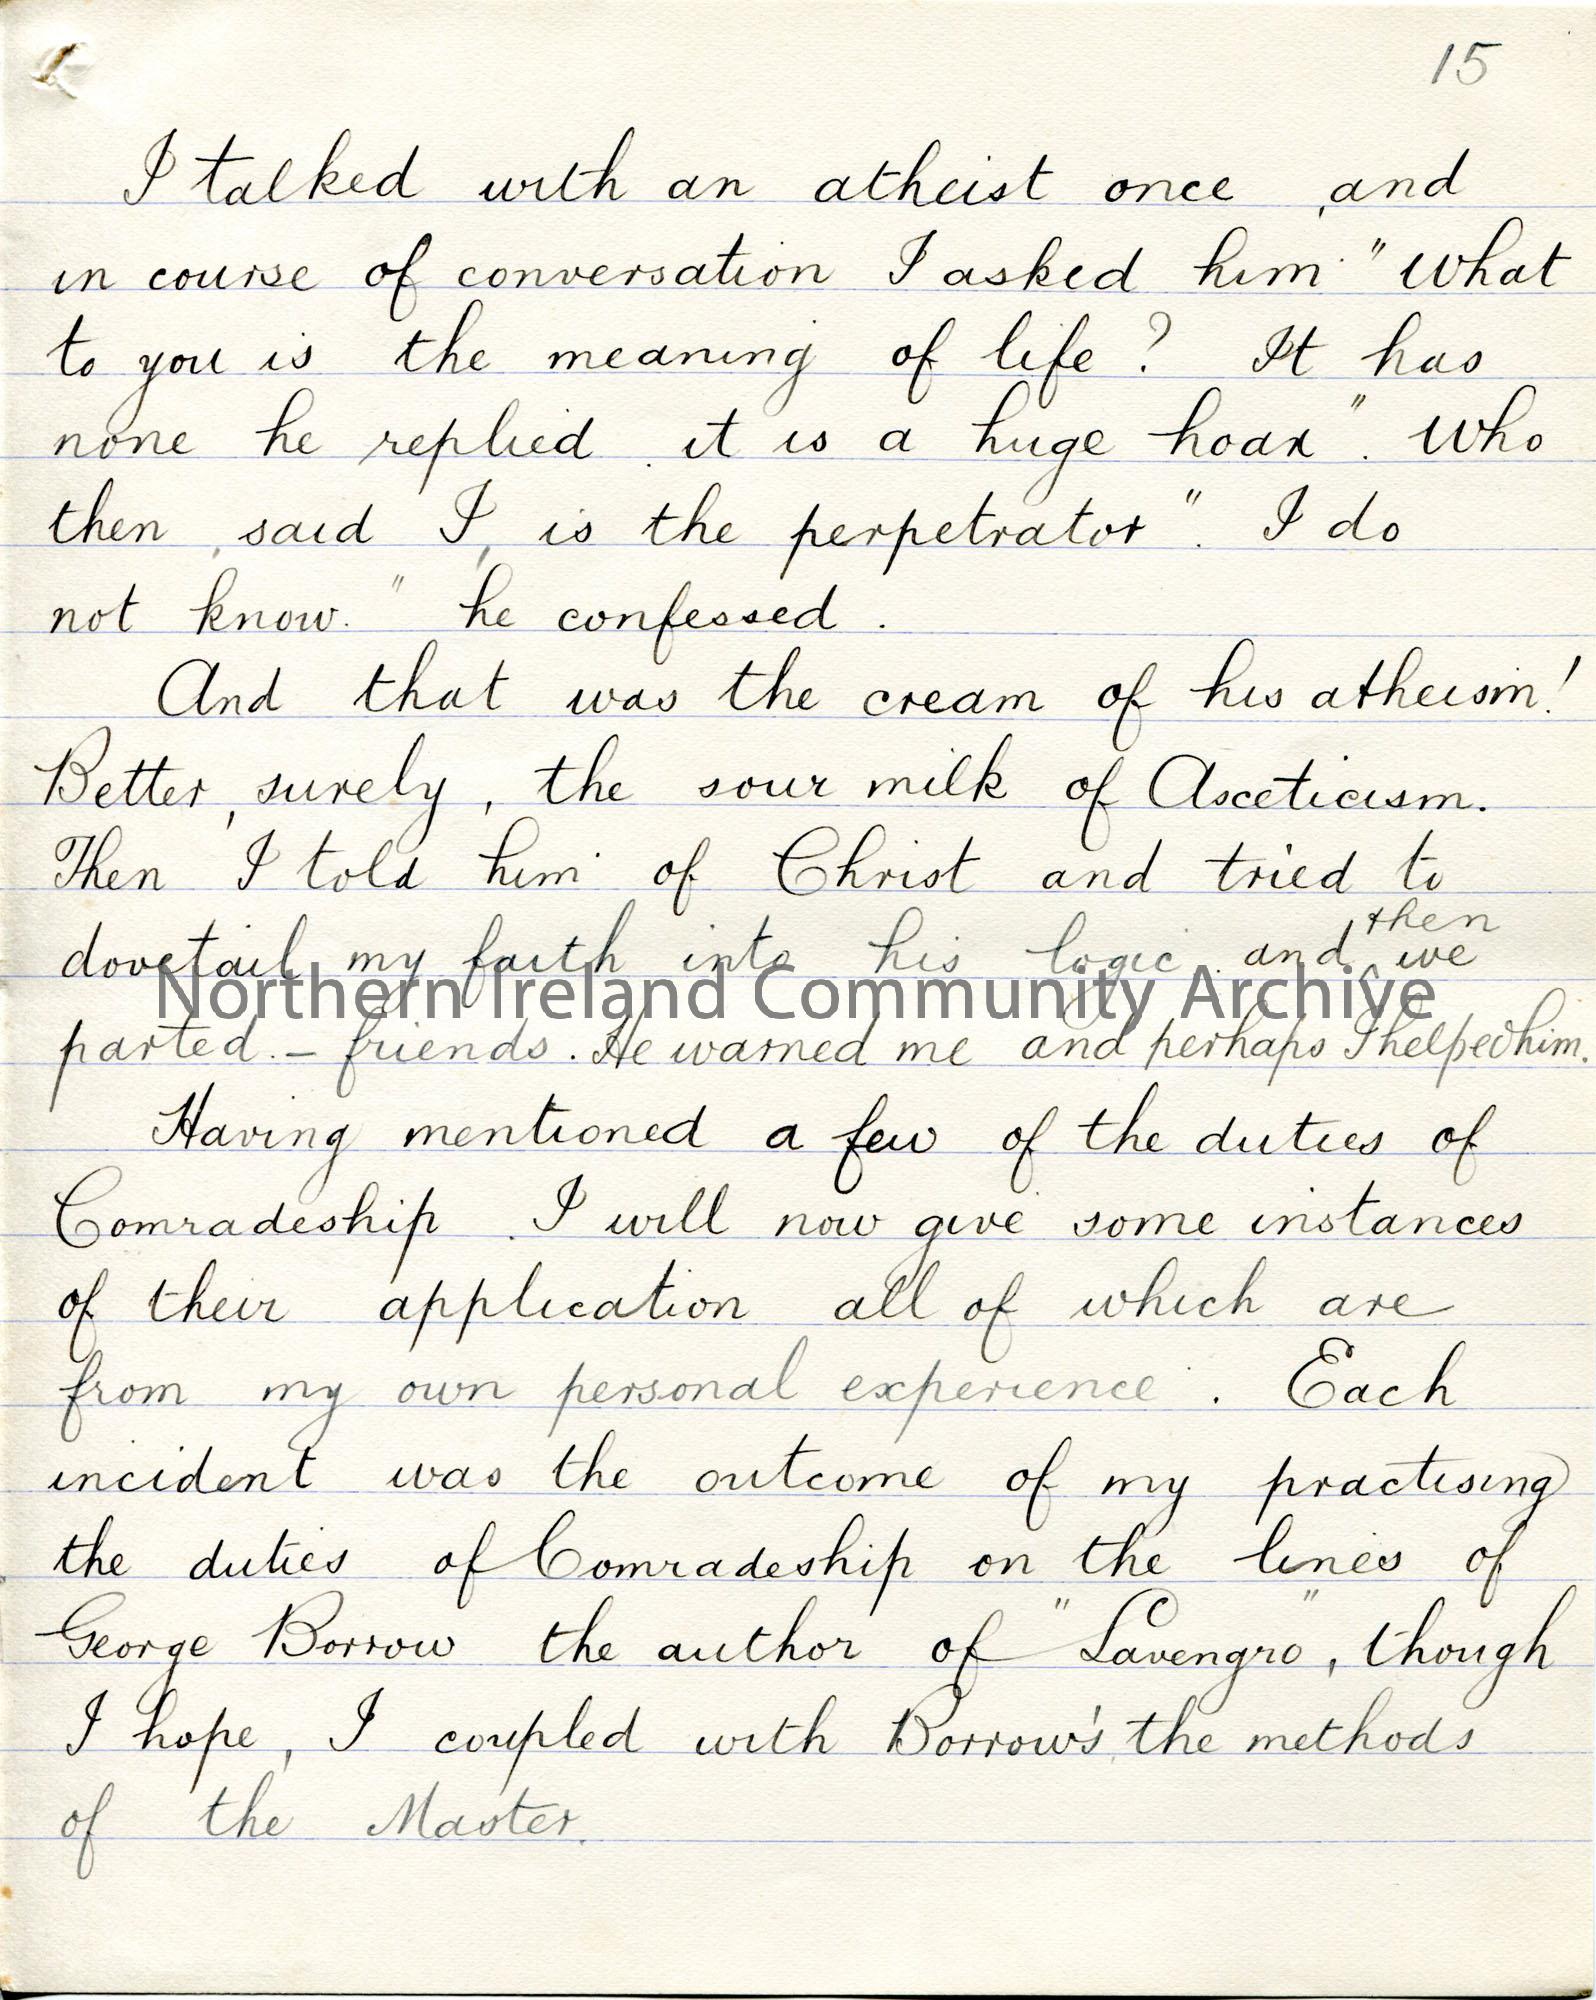 15
I talked with an atheist once , and
in course of conversation I asked him "What
to you is the meaning of life ? It has
none he replied . it is a huge hoax". Who
then , said I , is the perpetrator". I do
not know." he confessed .
And that was the cream of his atheism!
Better, surely, the sour milk of Asceticism.
Then I told him of Christ and tried to
dovetail my faith into his logic . and then we
Northern Ireland Community Archive
parted. – friends. He warned me and perhaps I helped him.
Having mentioned a few of the duties of
Comradeship . I will now give some instances
of their application all of which are
from my own personal experience . Each
incident was the outcome of my practising
the duties of Comradeship on the lines of
George Borrow the author of "Lavengro", though
I hope, I coupled with Borrow's the methods
of the Master.